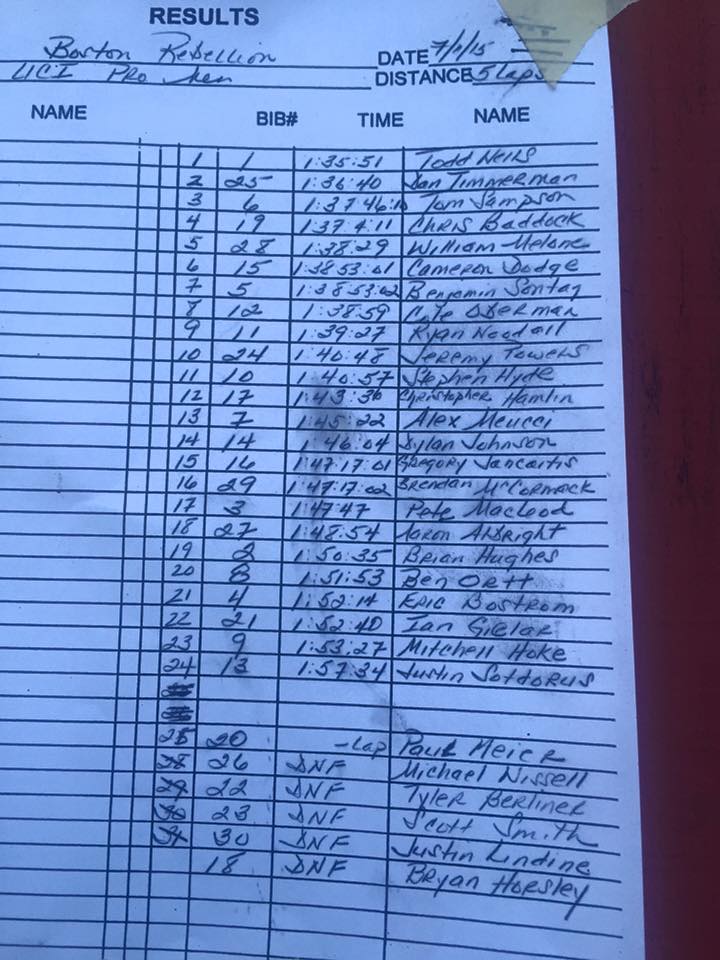 RESULTS
Boston Rebellion DATE 7/1/15
UCI Pro Men DISTANCE 5 laps
NAME BIB# TIME NAME
1 1 1:35:51 Todd Wells
2 25 1:36:40 Dan Timmerman
3 6 1:37:46:10 Tom Sampson
4 19 1:37:4:11 Chris Baddock
5 28 1:38:29 William Melone
6 15 1:38:53:01 Cameron Dodge
7 5 1:38:53:02 Benjamin Sontag
8 12 1:38:59 Cole Oberman
9 11 1:39:27 Ryan Woodall
10 24 1:40:48 Jeremy Powers
11 10 1:40:57 Stephen Hyde
12 17 1:43:36 Christopher Hamlin
13 7 1:45:22 Alex Meucci
14 14 1:46:04 Dylan Johnson
15 16 1:47:17:01 Gregory Jancaitis
16 29 1:47:17:02 Brendan McCormack
17 3 1:47:47 Pete Macleod
18 27 1:48:54 Aaron Albright
19 2 1:50:35 Brian Hughes
20 8 1:51:53 Ben Ortt
21 4 1:52:14 Eric Bostrom
22 21 1:52:40 Ian Gielar
23 9 1:53:27 Mitchell Hoke
24 13 1:57:34 Justin
25 20 -Lap Paul Meier
28 26 DNF Michael Wissell
29 22 DNF Tyler Berliner
30 23 DNF Scott Smith
31 30 DNF Justin Lindine
18 DNF Bryan Horsley